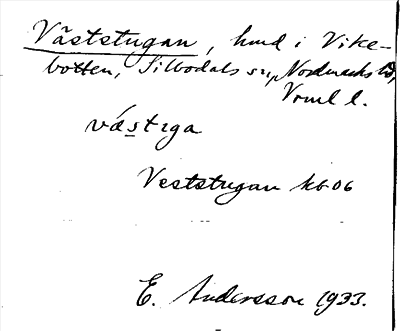 Väststugan, hmd i Vike-
botten, Silbodals sn, Nordmarks hd,
Vrml l.
væ̀stᴉga
Veststugan kb 06
E. Andersson 1933.